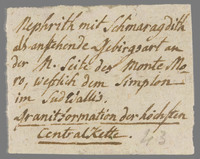 Nephrit mit Schmaragdith
als anstehende Gebirgsart an
der N. Seite des Monte Mo-
ro, westlich dem Simplon
im Südwallis.
Granitformation der höchsten
Centralkette.
43